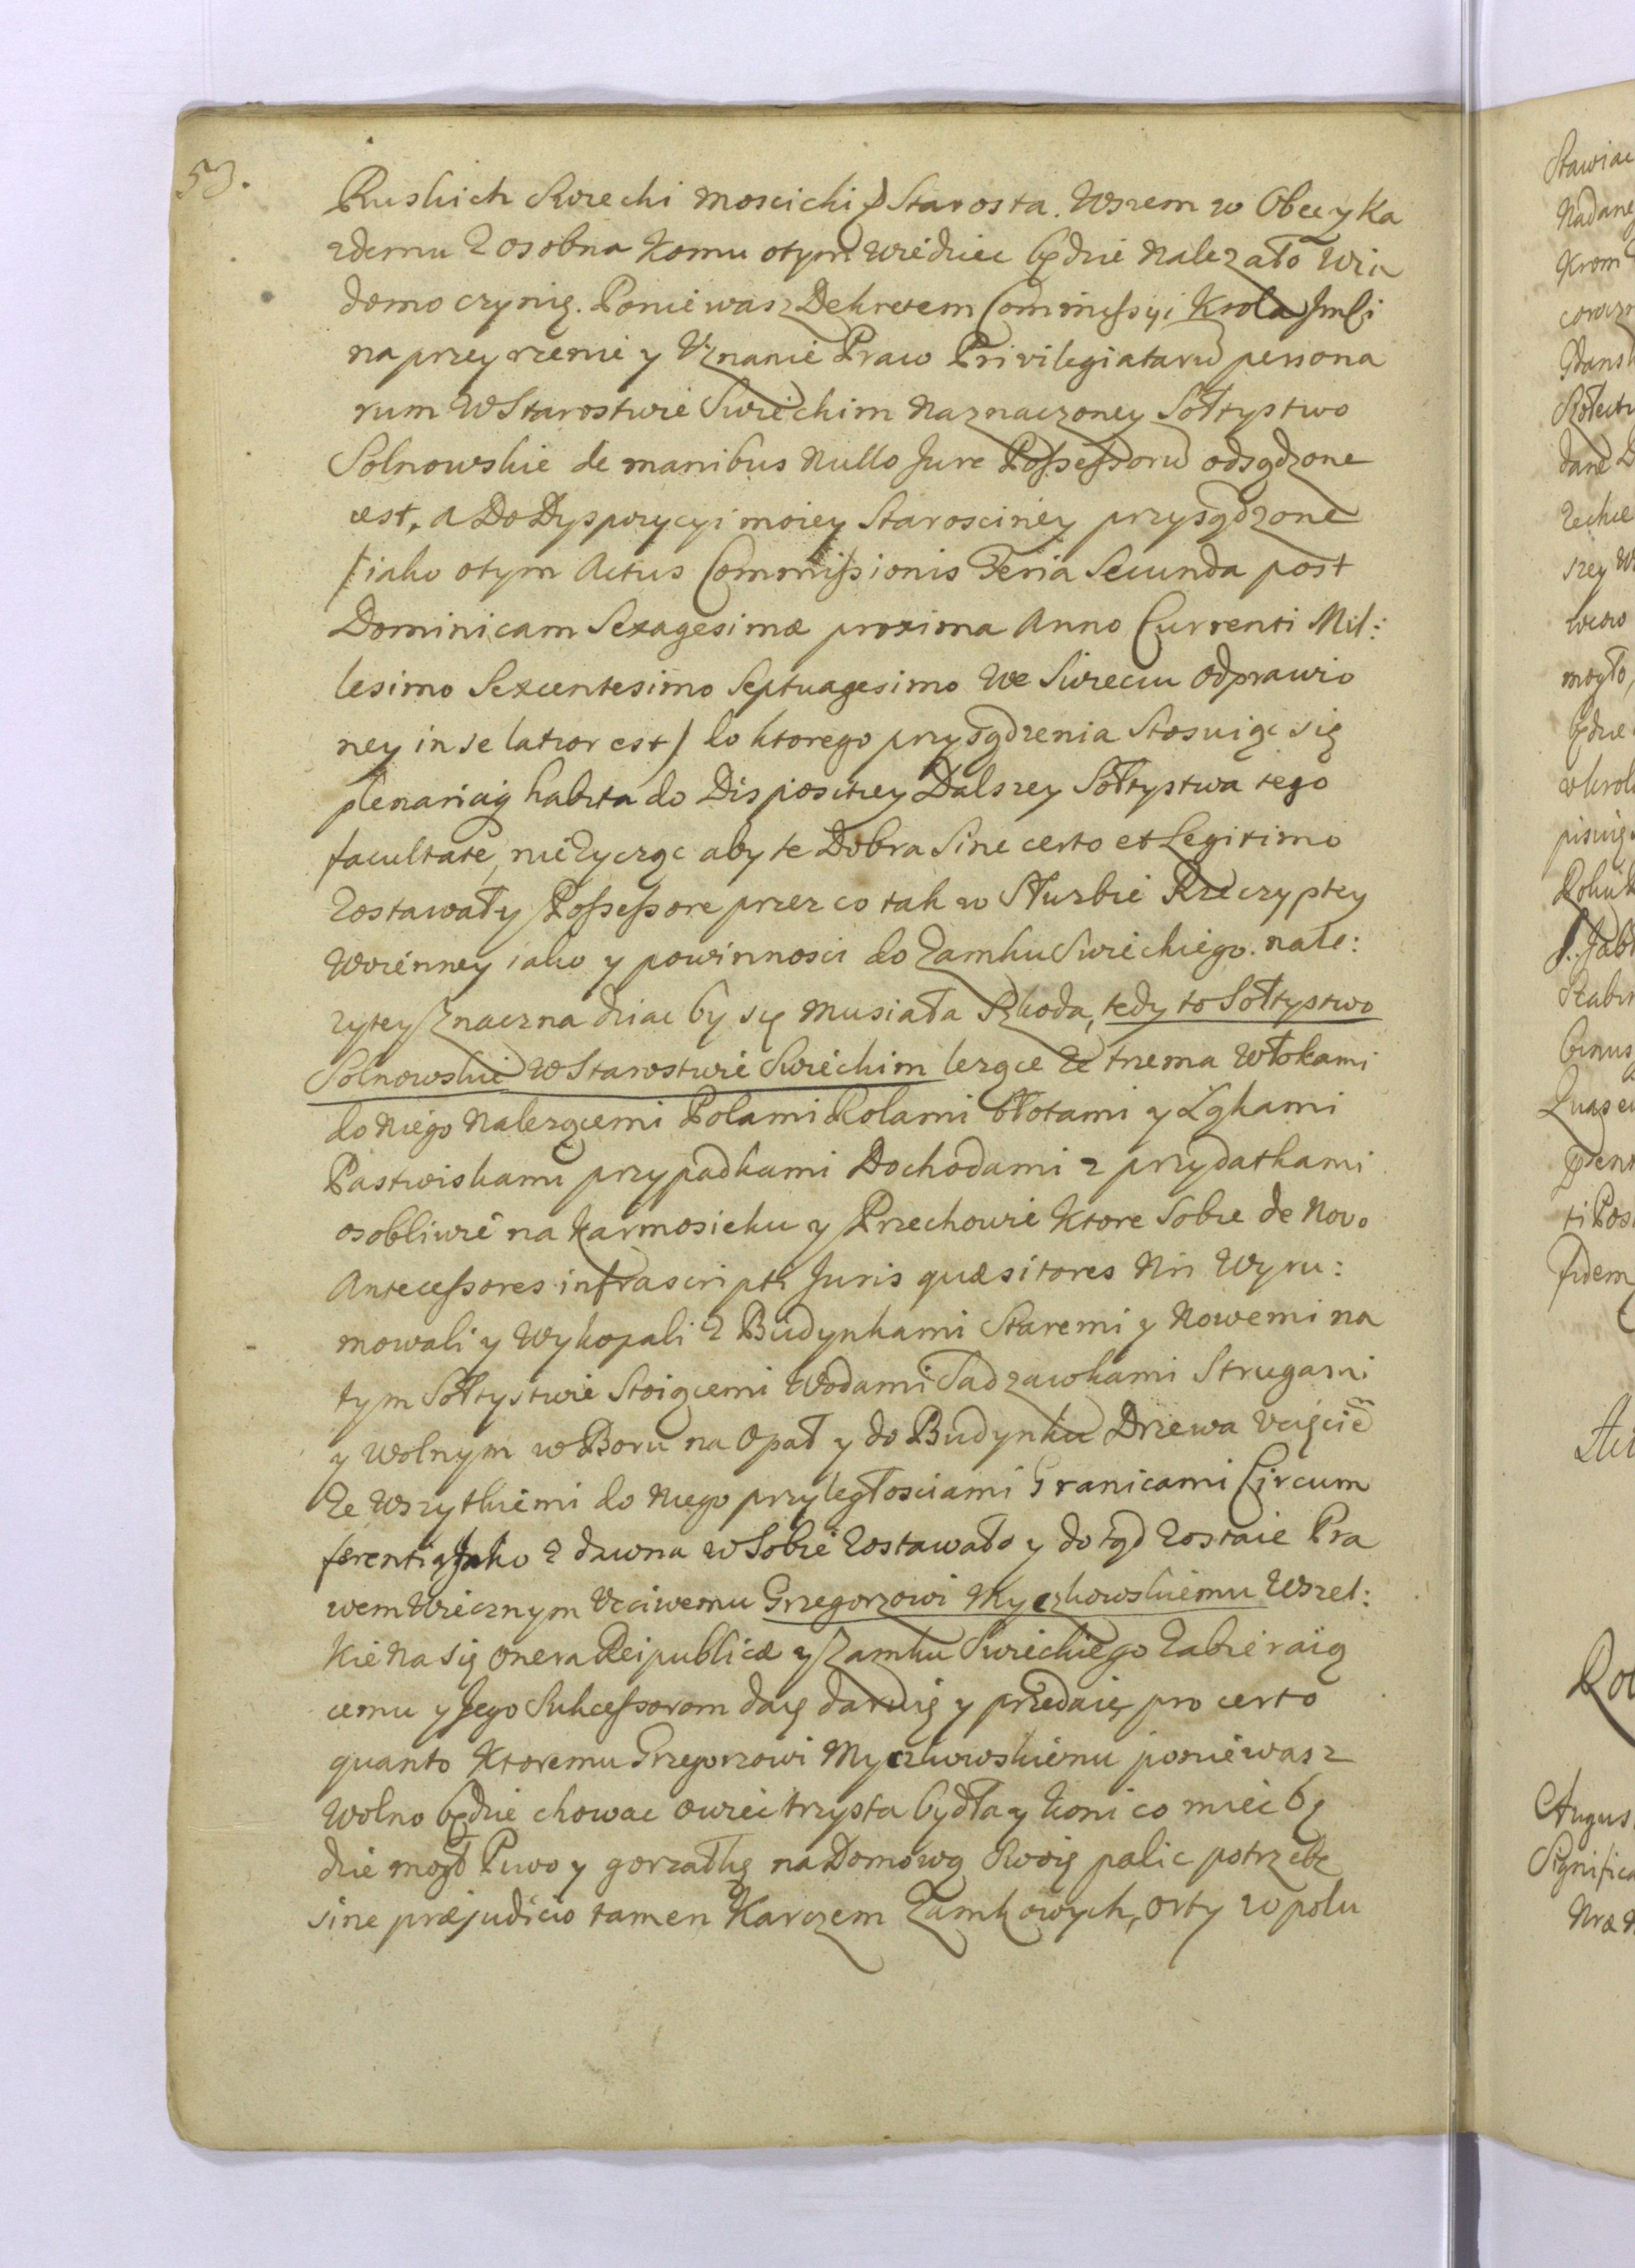 53.
Ruskich Swiecki Moscicki Starosta. Wszem w Obec y Ka
zdemu Z osobna Komu otym wiedziec będzie Nalezało Wia
domo czynię. Poniewasz Dekretem Commissyi Krola Jmsci
na przeyrzenie y Vznanie Praw Privilegiataru persona
rum W Starostwie Swieckim Naznaczoney Sołtystwo
Solnowskie de manibus Nullo Jure Possessoru odsądzone
iest, a Do Dyspozycyi moiey Starosciney przysądzone
/iako otym Actus Commissionis Feria Secunda post
Dominicam Sexagesimæ proxima Anno Currenti Mil:
lesimo Sexcentesimo Septuagesimo We Swieciu Odprawio
ney in se latior est/ do ktorego przysądzenia Stosuiąc się
plenariaq habita do Dispositiey Dalszey Sołtystwa tego
facultate, nieZycząc aby te Dobra Sine certo et Legitimo
Zostawały Possessore przez co tak w Służbie Rzeczyptey
Woienney iako y powinnosci do Zamku Swieckiego nałe:
zytey Znaczna dziac by się Musiała Szkoda, tedy to Sołtystwo
Solnowskie W Starostwie Swieckim lezące Ze trzema Włokami
do Niego Nalezącemi Polami Rolami błotami y Ląkami
Pastwiskami przypadkami Dochodami z przydatkami
osobliwie na Karmosieku y Przechowie Ktore Sobie de Novo
Antecessores infrascripti Juris quæsitores Nri Wyru:
mowali y Wykopali Z Budynkami Staremi y Nowemi na
tym Sołtystwie Stoiącemi Wodami Sadzawkami Strugami
y Wolnym w Boru na Opał y do Budynku Drzewa Vcięciem
Ze Wszytkiemi do Niego przyległosciami Granicami Circum
ferentią Jako Z dawna w Sobie Zostawało y dotąd Zostaie Pra
wem Wiecznym Vcciwemu Grzegorzowi Myczkowskiemu Wszel:
Kie Na się Onera Reipublicæ y Zamku Swieckiego Zabieraią
cemu y Jego Sukcessorom daię daruię y przedaię pro certo
quanto Ktoremu Grzegorzowi Myczkowskiemu poniewasz
Wolno będzie chowac owiec trzysta bydła y Koni co miec bę
dzie mogł Piwo y gorzałkę na Domową Swoię palic potrzebę
sine præjudicio tamen Karczem Zamkowych, Orty w polu